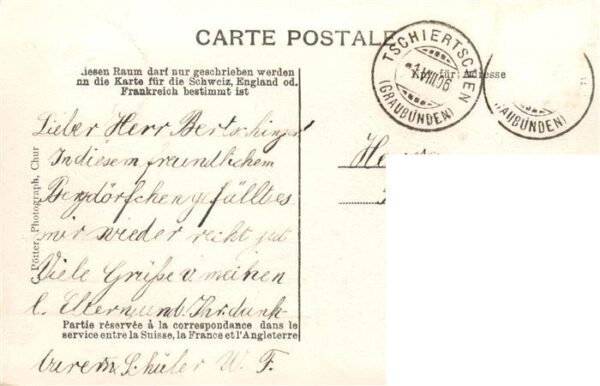 CARTE POSTALE
iesen Raum darf nur geschrieben werden
nn die Karte für die Schweiz, England od.
Frankreich bestimmt ist
Nur für Adresse
TSCHIERTSCHEN
1.VIII.16
(GRAUBÜNDEN)
AUBÜNDEN)
Lieber Herr Bertschinger!
In diesem freundlichem
Bergdörfchen gefällt es
mir wieder recht gut
Viele Grüße v. meinen
l. Eltern und Ihr. dank-
barem Schüler W. F.
Partie réservée à la correspondance dans le
service entre la Suisse, la France et l'Angleterre
C. Pötter, Photograph, Chur